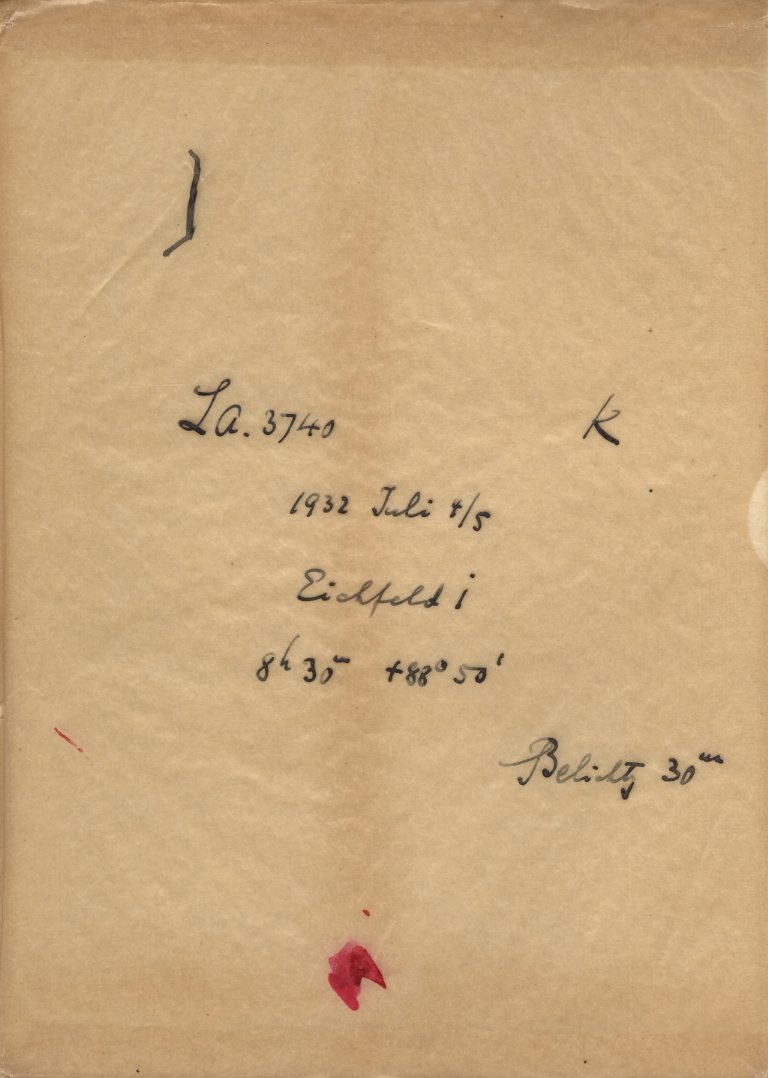 La. 3740 K
1932 Juli 4/5
Eichfeld i
8h 30m +88° 50'
Belichtg 30m